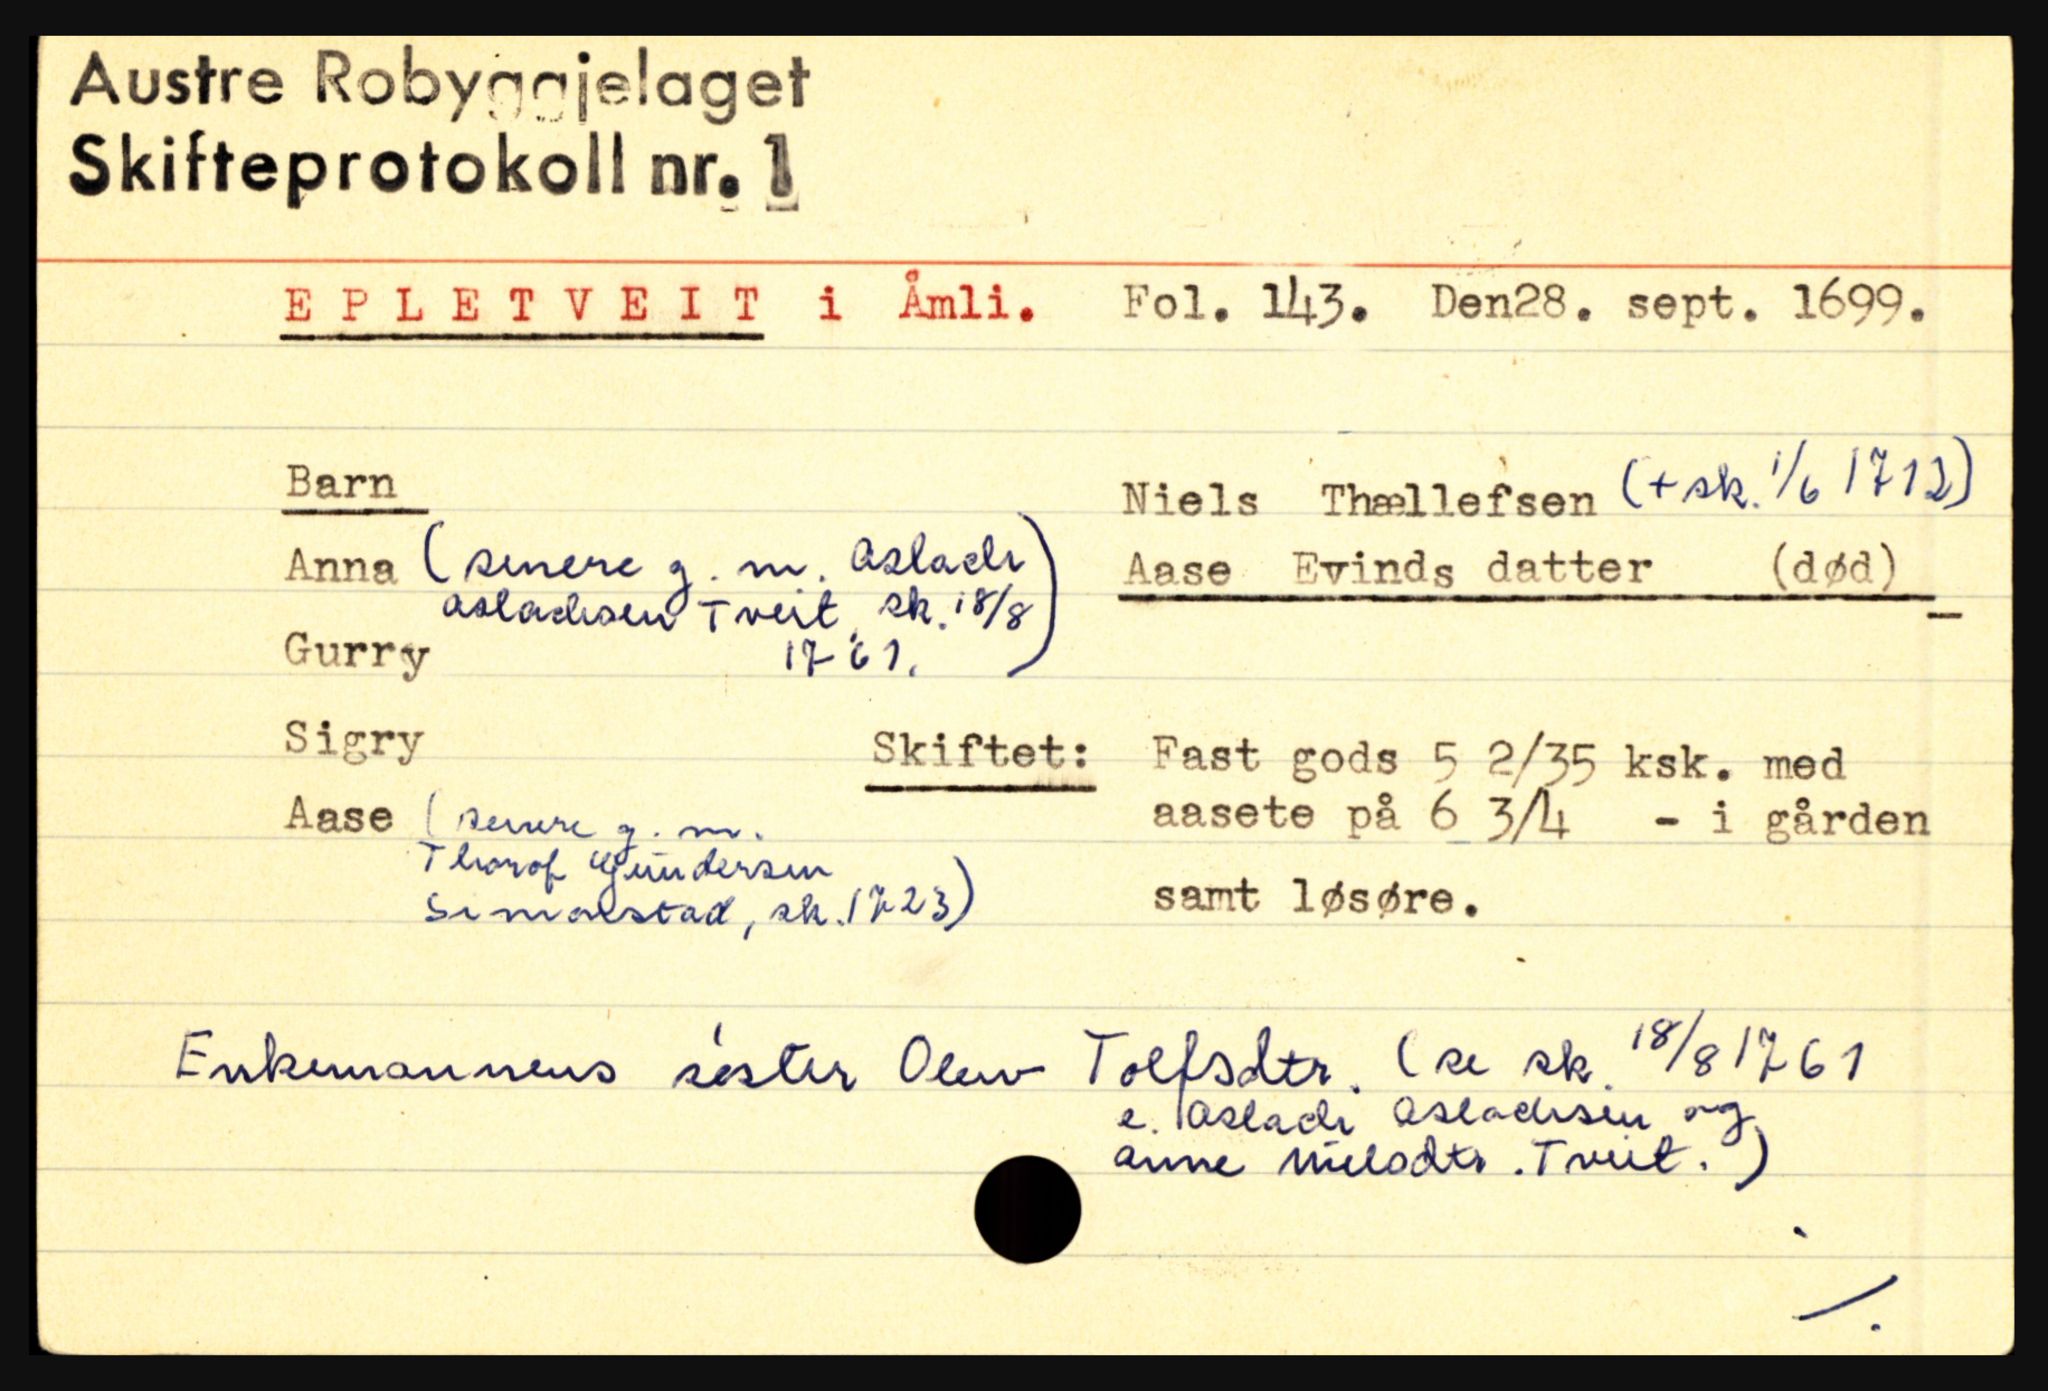 Austre Robyggjelaget
Skifteprotokoll nr. 1
EPLETVEIT i Åmli. Fol. 143. Den28. sept. 1699.
Barn
Niels Thællefsen (+ sk. 1/6 1712)
Anna (senere g. m. Aslach
Aslachsen Tveit, sk. 18/8
1761.)
Aase Evinds datter (død)
Gurry
Sigry
Aase (senere g. m.
Thorof Gundersen
Simonstad, sk. 1723)
Skiftet: Fast gods 5 2/35 ksk. med
aasete på 6 3/4 - i gården
samt løsøre.
Enkemannens søster Olew Tolfsdtr. (se sk. 18/8 1761
e. Aslach Aslachsen og
Anne Nielsdtr. Tveit.)